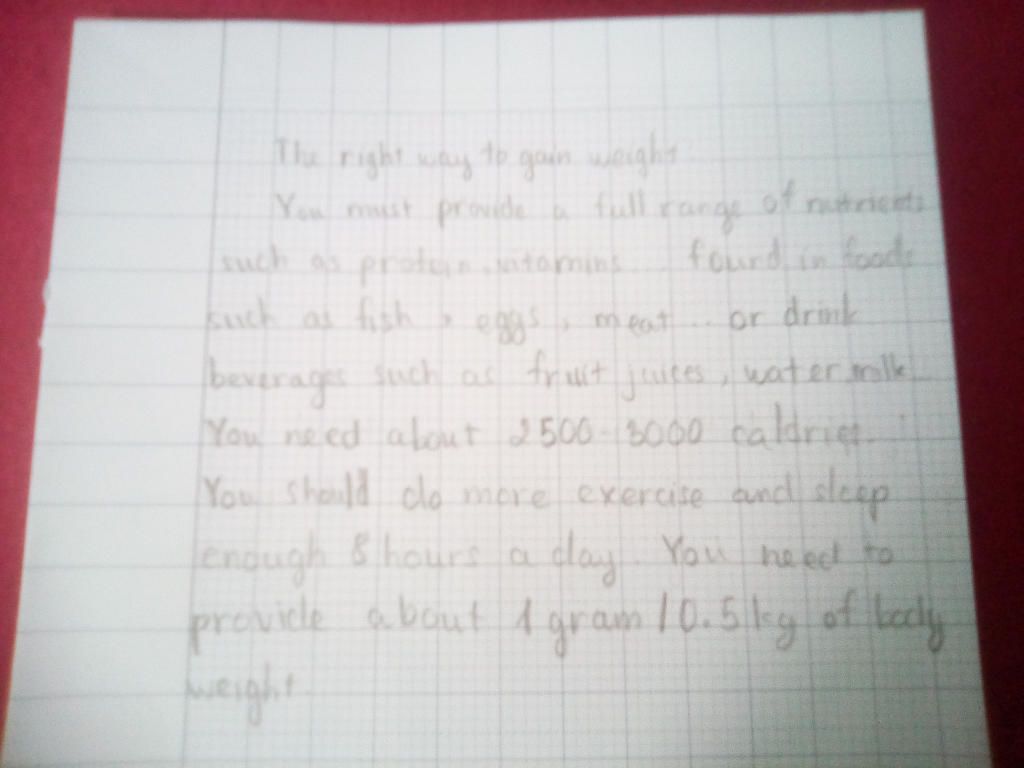 The right way to gain weight
You must provide a full range of nutrients
such as protein, vitamins... found in foods
such as fish, eggs, meat... or drink
beverages such as fruit juices, water, milk
You need about 2500-3000 calories.
You should do more exercise and sleep
enough 8 hours a day. You need to
provide about 1 gram / 0.5 kg of body
weight.